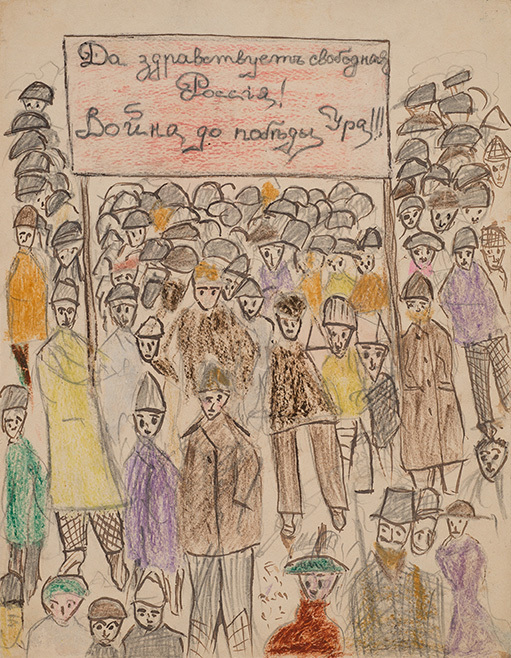 Да здравствуетъ свободная
Россія!
Война до побѣды Ура!!!